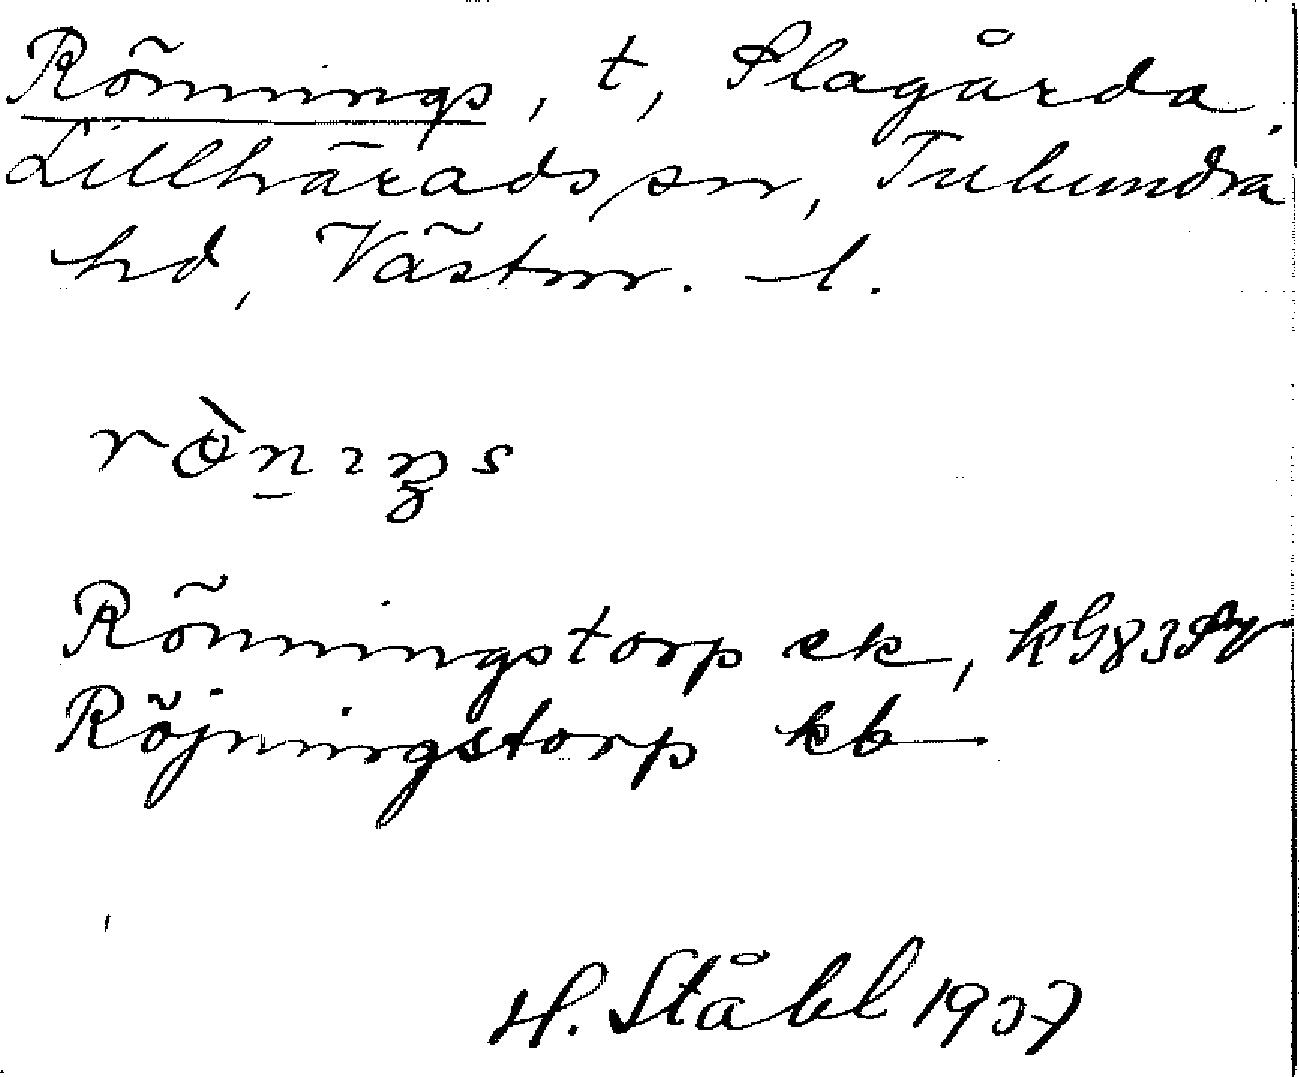 Rönnings, t, Plagårda,
Lillhärads sn, Tuhundra
hd, Västm. l.
rö̀nɪŋs
Rönningstorp ek,
Röjningstorp kb
H. Ståhl 1937